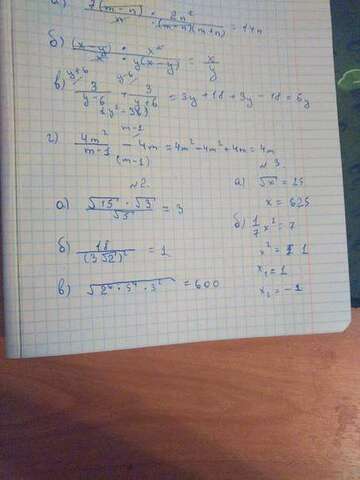 а) 7(m-n)/n · 2n²/((m-n)(m+n)) = 14n
б) (x-y)/x · x²/(y(x-y)) = x/y
в) 3/(y-6) + 3/(y+6) = 3y+18+3y-18=6y
y+6 y-6
(y²-36)
г) 4m²/(m-1) - 4m = 4m²-4m²+4m=4m
m-1
(m-1)
№2.
а) √15 · √3 / √5 = 3
б) 18/(3√2)² = 1
в) √2⁴ · 5⁴ · 3² = 600
№3.
а) √x = 25
x = 625
б) 1/7 x² = 7
x² = 1
x₁ = 1
x₂ = -1